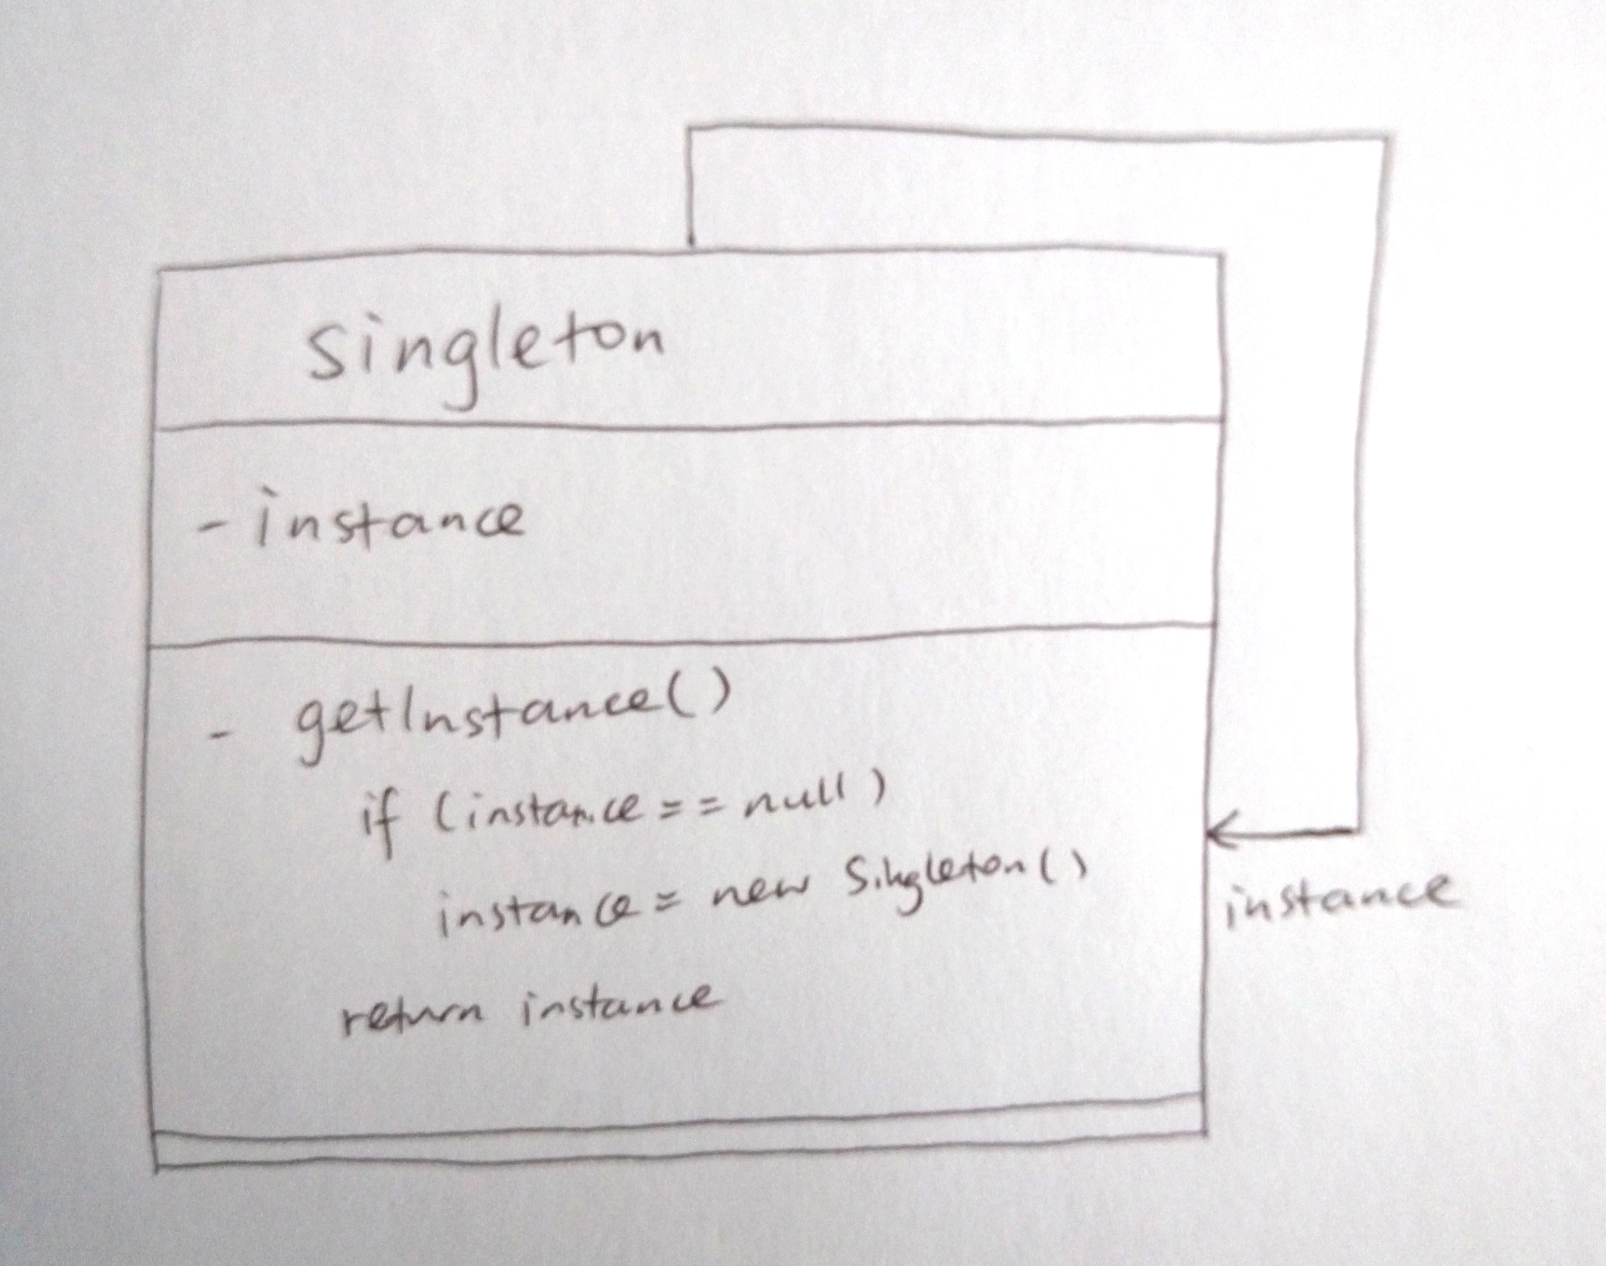 Singleton
- instance
- getInstance()
if (instance == null)
instance = new Singleton()
return instance
instance